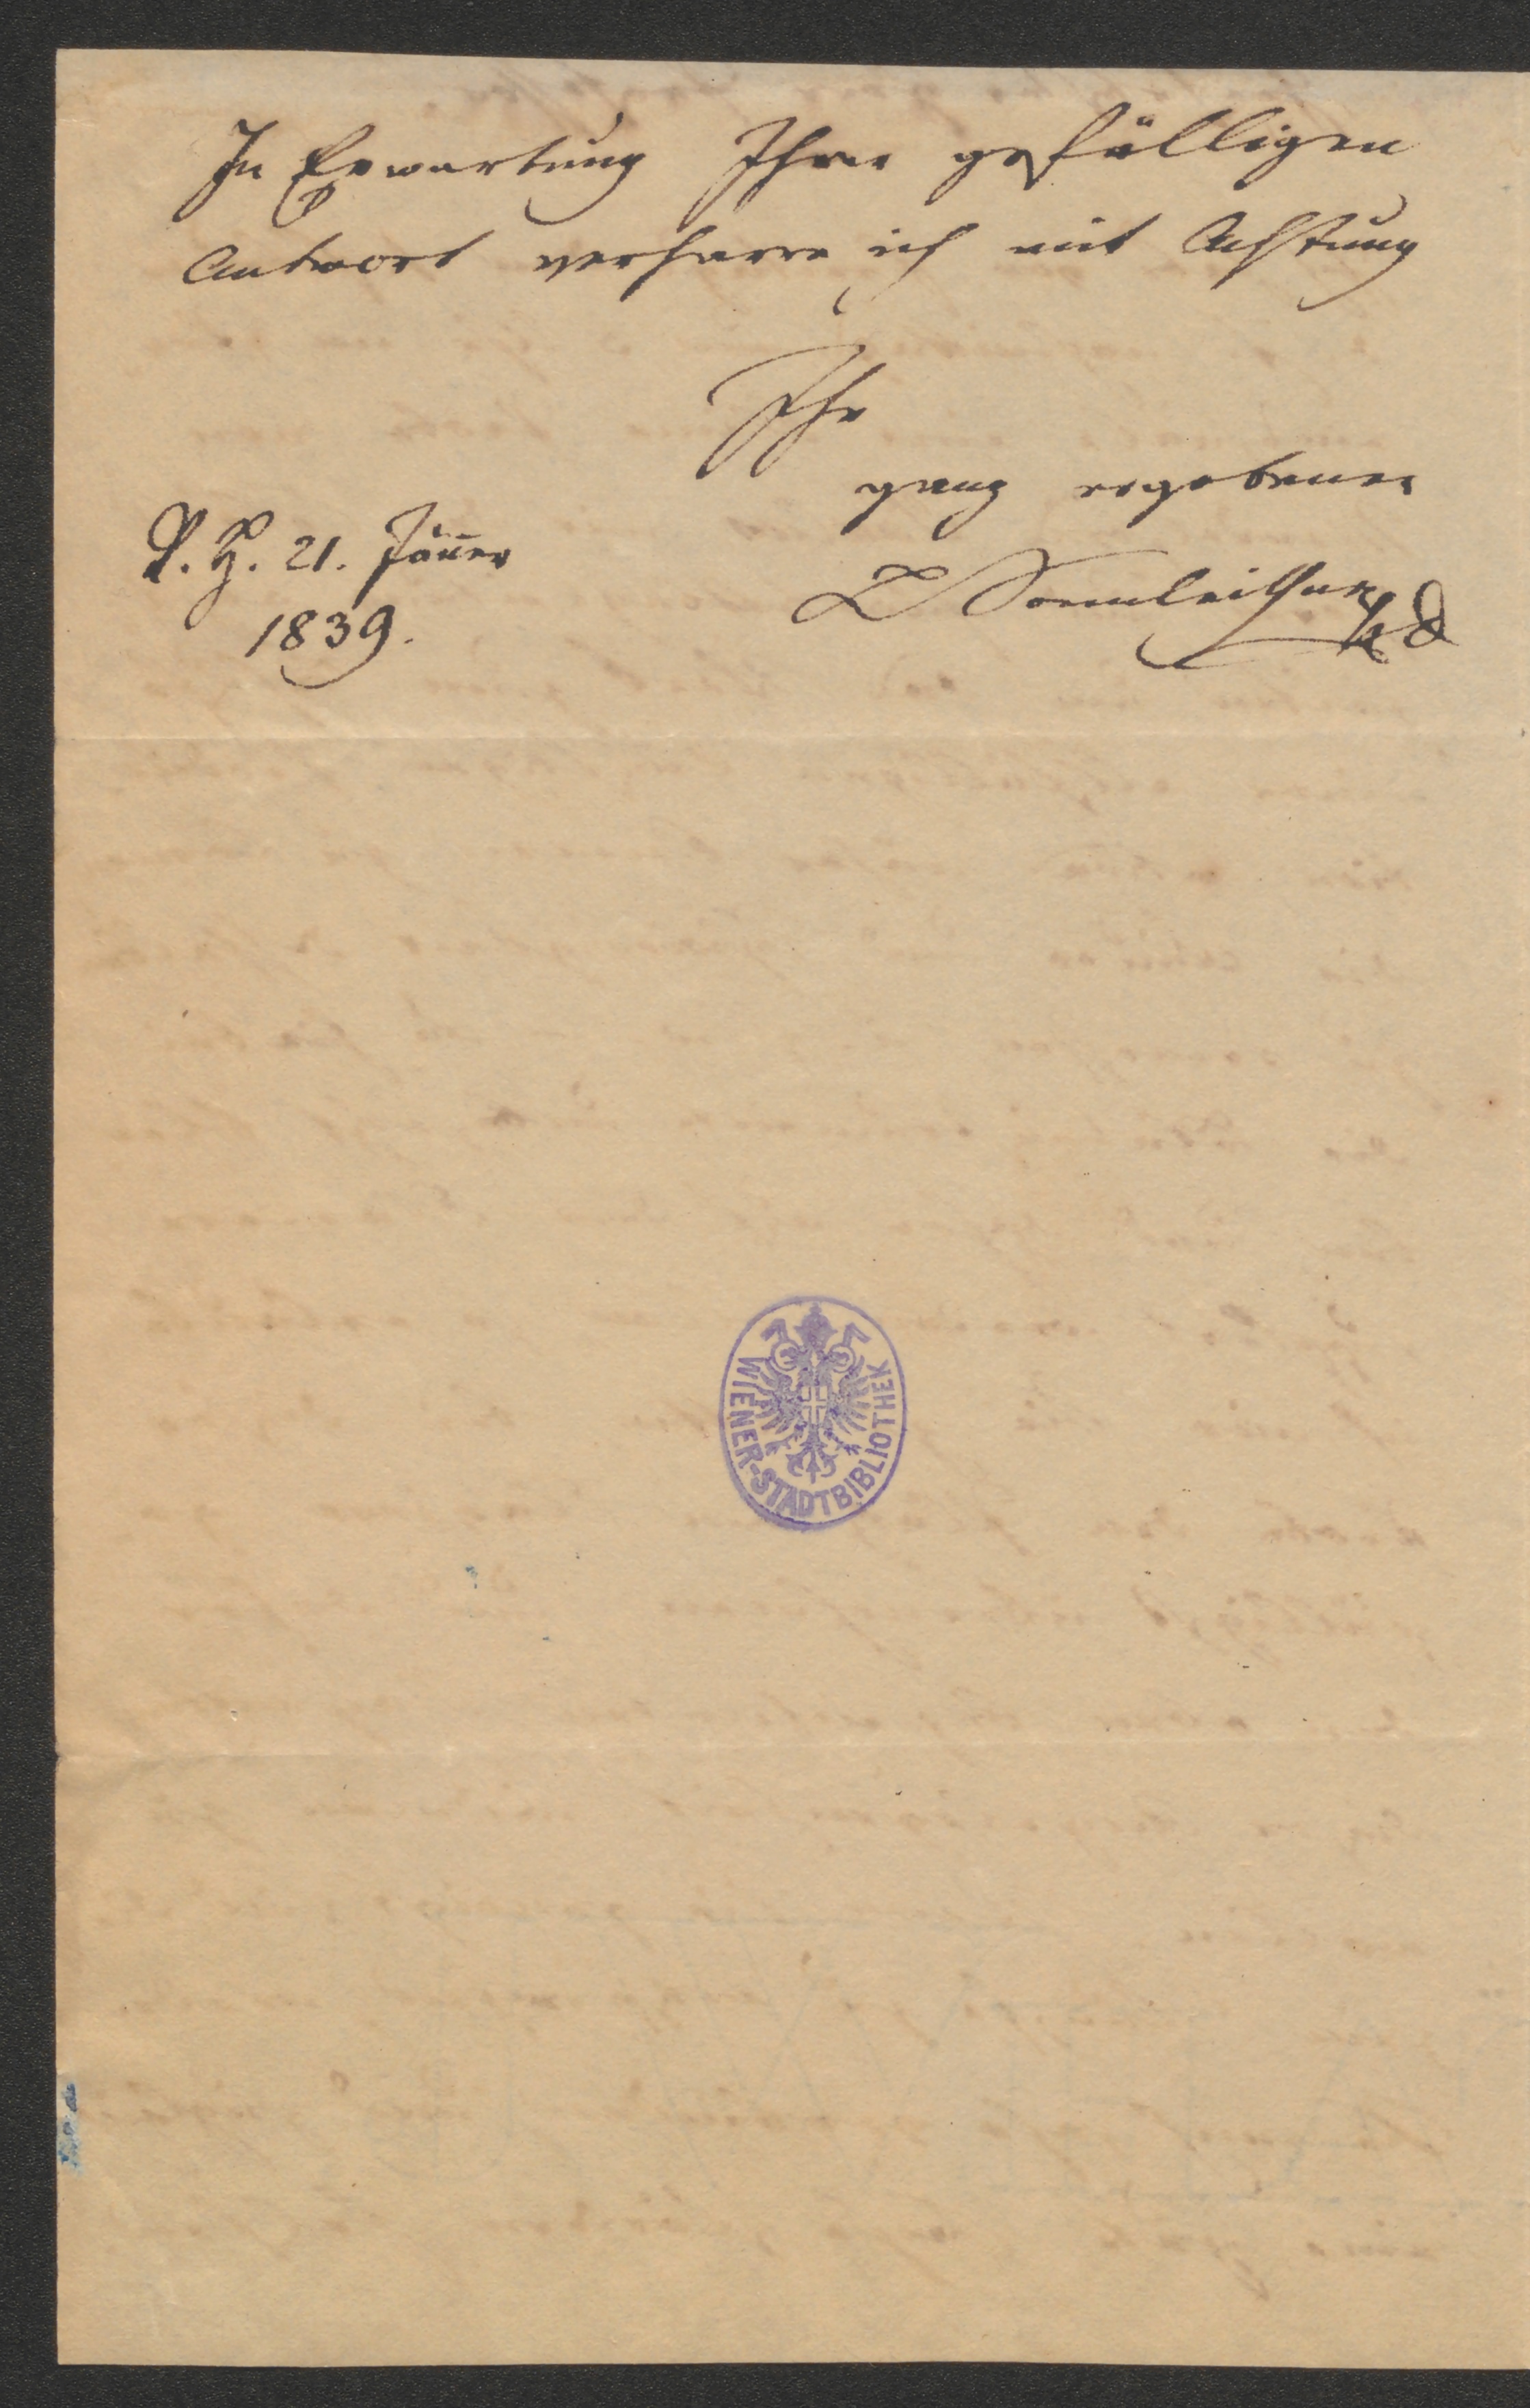 In Erwartung Ihrer gefälligen
Antwort verharre ich mit Achtung
Ihr
ganz ergebener
L Sonnleithner
V. H. 21. Jäner
1839.
WIENER-STADTBIBLIOTHEK